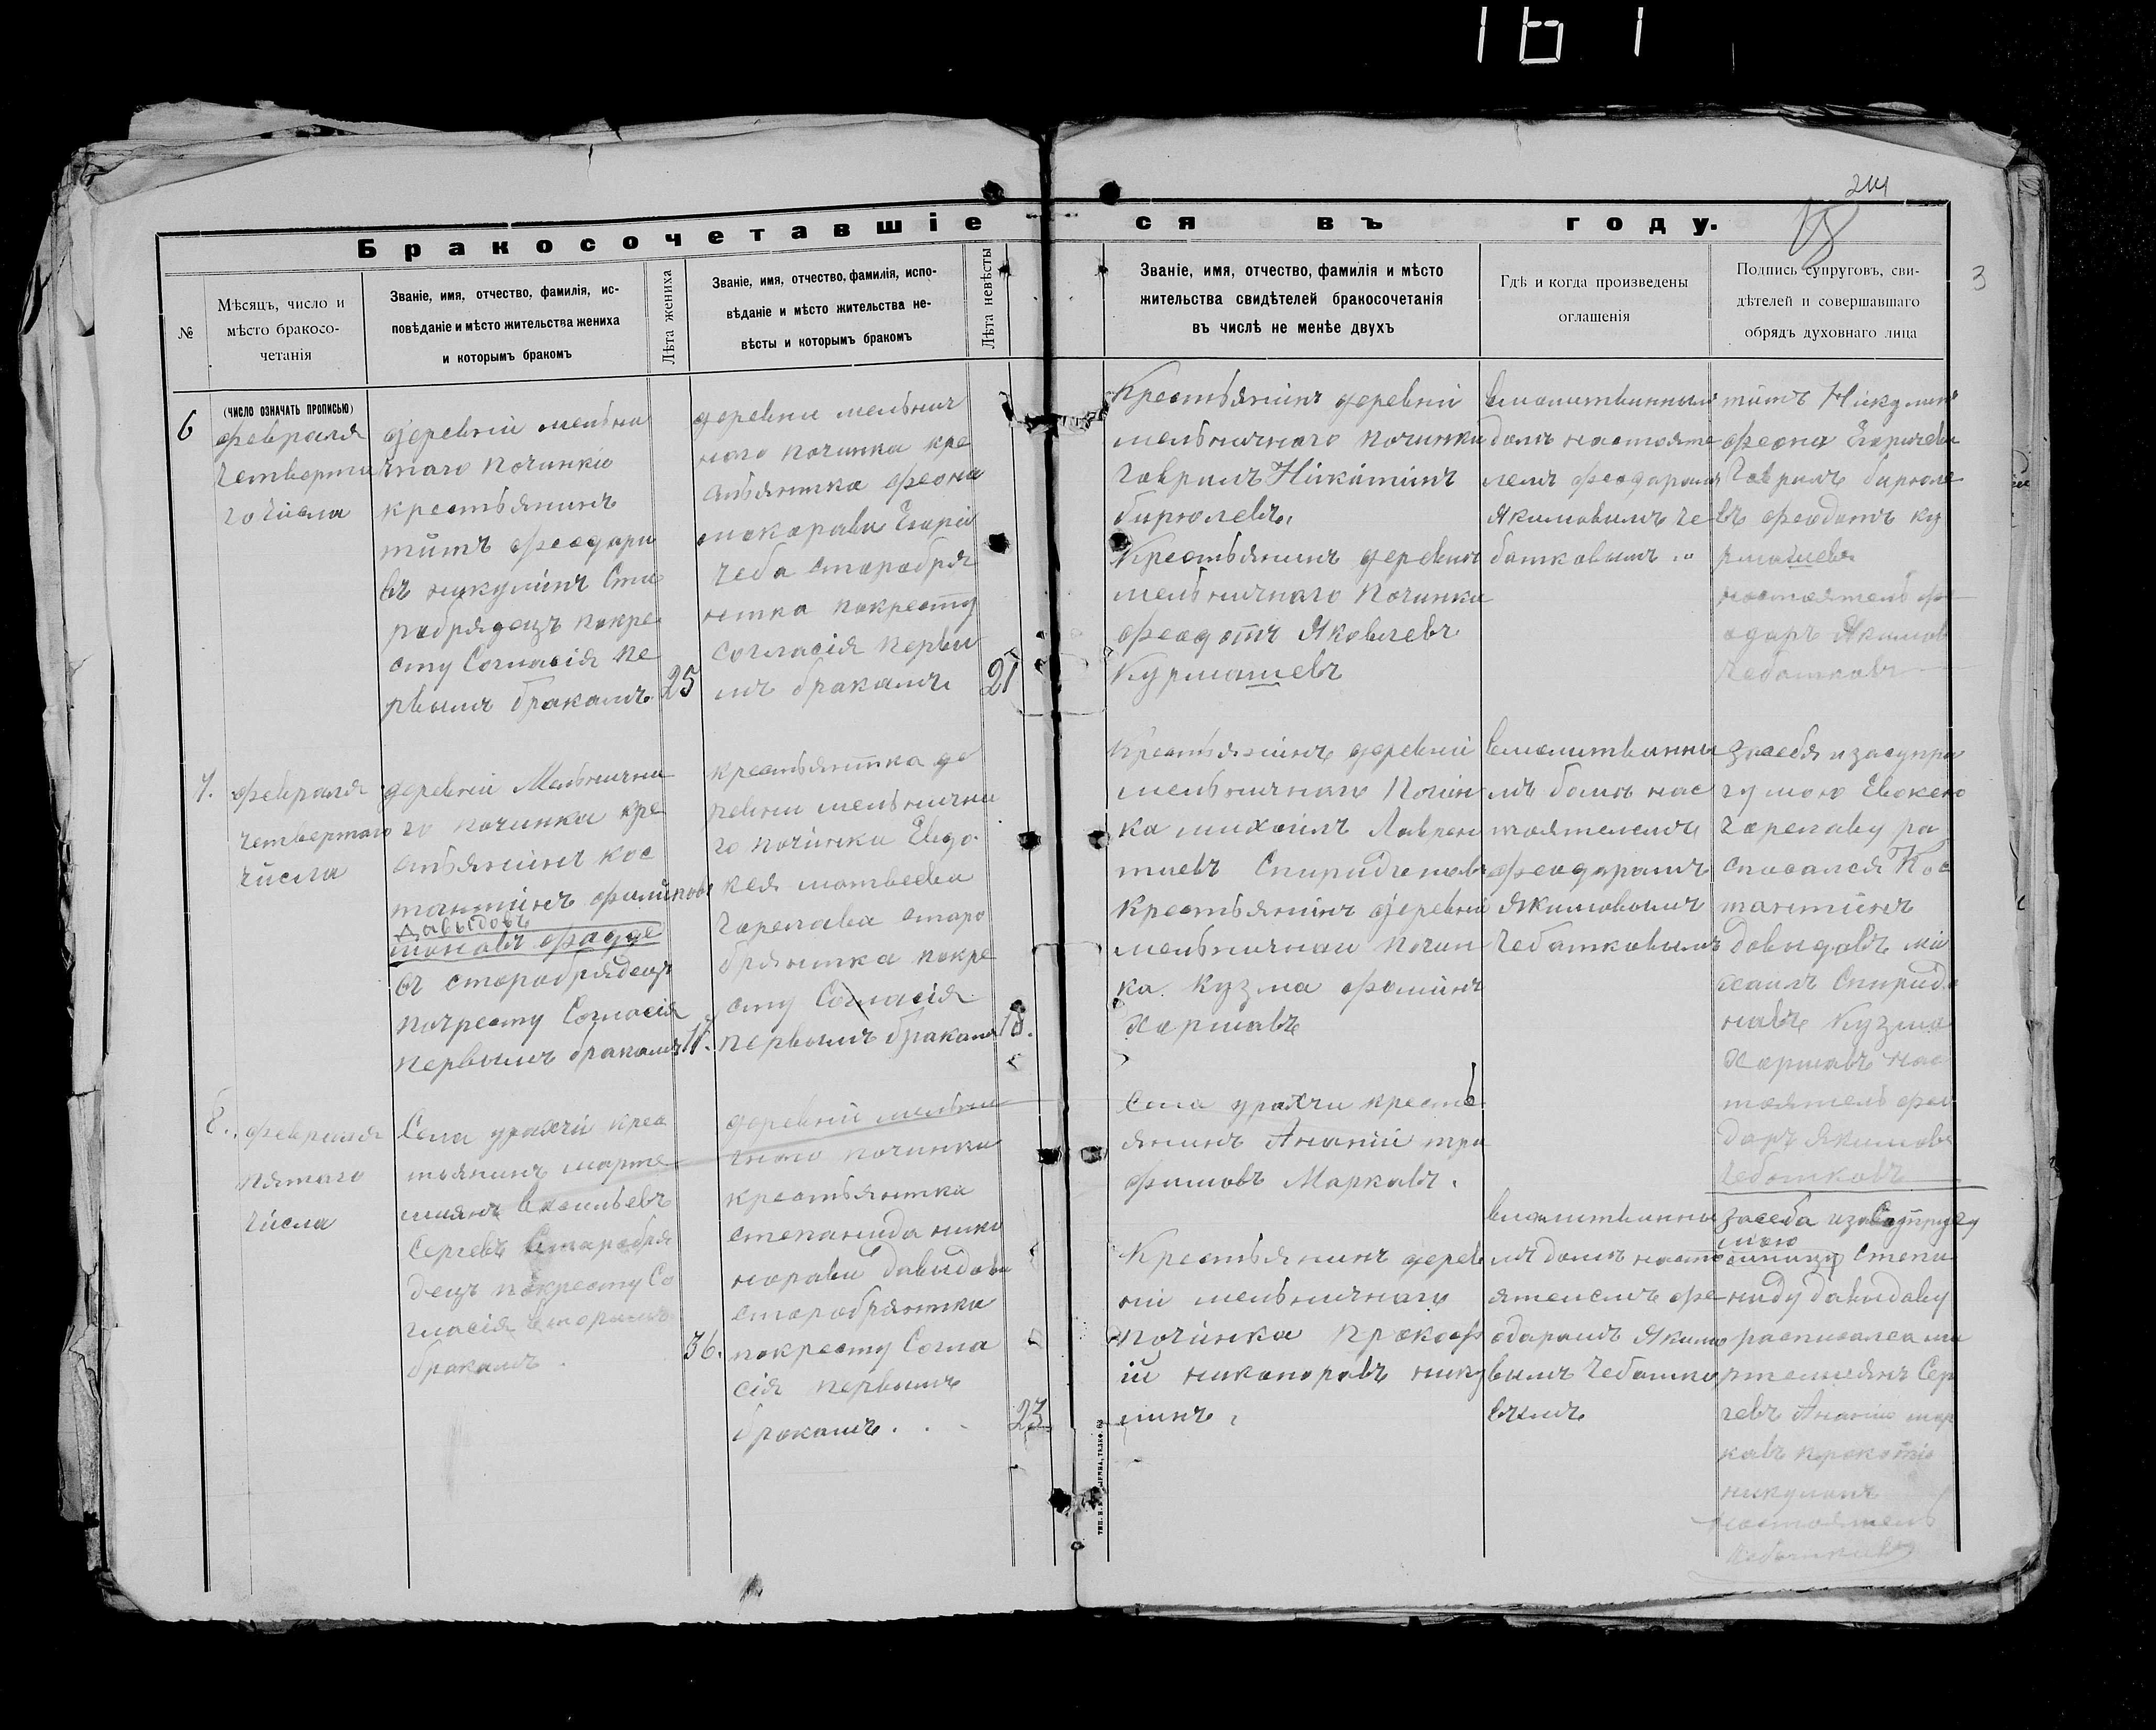 161
244
18
3
Бракосочетавшіеся въ году.
№
Мѣсяцъ, число и
мѣсто бракосо-
четанія
Званіе, имя, отчество, фамилія, ис-
повѣданіе и мѣсто жительства жениха
и которымъ бракомъ
Лѣта жениха
Званіе, имя, отчество, фамилія, испо-
вѣданіе и мѣсто жительства не-
вѣсты и которымъ бракомъ
Лѣта невѣсты
Званіе, имя, отчество, фамилія и мѣсто
жительства свидѣтелей бракосочетанія
въ числѣ не менѣе двухъ
Гдѣ и когда произведены
оглашенія
Подпись супруговъ, сви-
дѣтелей и совершавшаго
обрядъ духовнаго лица
(число означать прописью)
6
февраля
четверта
го числа
деревни мельни
чнаго починки
крестьянинъ
титъ феодоро
въ никулинъ Ста
робрядецъ покре
сту Согласія пе
рвымъ бракамъ
25
деревни мельнич
ного починка кре
стьянтка феона
макарава Егори
чева старобря
нтка покресту
согласія первы
мъ бракамъ
21
Крестьянинъ деревни
мельничнаго починки
Гаврилъ Никитинъ
бирюлевъ
Крестьянинъ деревни
мельничнаго Починка
феодотъ Яковлевъ
Курмашевъ
вмолитвинный
домъ настояте
лемъ феодорамъ
Якимовымъ че
батковымъ
титъ Никулинъ
феона Егоричева
Гаврилъ бирюле
въ феодотъ ку
рмашевъ
настоятель фе
одоръ Якимов
Чебатковъ
7.
февраля
четвертаго
числа
деревни Мельнични
го починка кре
стьянинъ кос
тантинъ филипов
Давыдовъ
въ старобрядецъ
покресту Согласія
первымъ бракамъ
крестьянтка де
ревни мельнични
го починка Евдо
кея матвеева
Горелава старо
брянтка покре
сту Согласія
первымъ бракамъ
18.
Крестьянинъ деревни
мельничнаго Почин
ка михаилъ Лаврен
тиевъ Спиридоновъ
Крестьянинъ деревни
мельничнаго почин
ка Кузма фоминъ
Харламвъ
вмолитвинны
мъ домъ нас
тоятелемъ
феодорамъ
Якимовымъ
Чебатковымъ
засебя изасупру
гу мою Евокею
Горелаву ра
списался Кос
тантинъ
довыдавъ ми
хаилъ Спирид
навъ Кузма
нас
тоятель фео
доръ Якимовъ
Чебатковъ
8.
февраля
пятаго
числа
Села урахчи крес
тьянинъ марте
миянъ Васильевъ
Сергевъ Старобря
децъ покресту Со
гласія вторымъ
бракамъ
36.
деревни мельни
чнаго починка
крестьянтка
степанида нико
норави давидова
старобрянтка
покресту Согла
сія первымъ
бракамъ
23
Села урахчи кресть
янинъ Ананій тра
фимовъ Маркавъ.
Крестьянинъ дерев
ни мельничнаго
починка прокоф
ій никаноровъ нику
линъ
вмолитвинны
мъ домъ насто
ятелемъ фе
одорамъ Якимо
вымъ Чебатко
вымъ
засеба изаСупругу
мою
Степа
ниду давидаву
расписался ма
ртемиянъ Сер
гевъ Ананій мар
кавъ прокофій
никулинъ
Настоятель
Чебатковъ